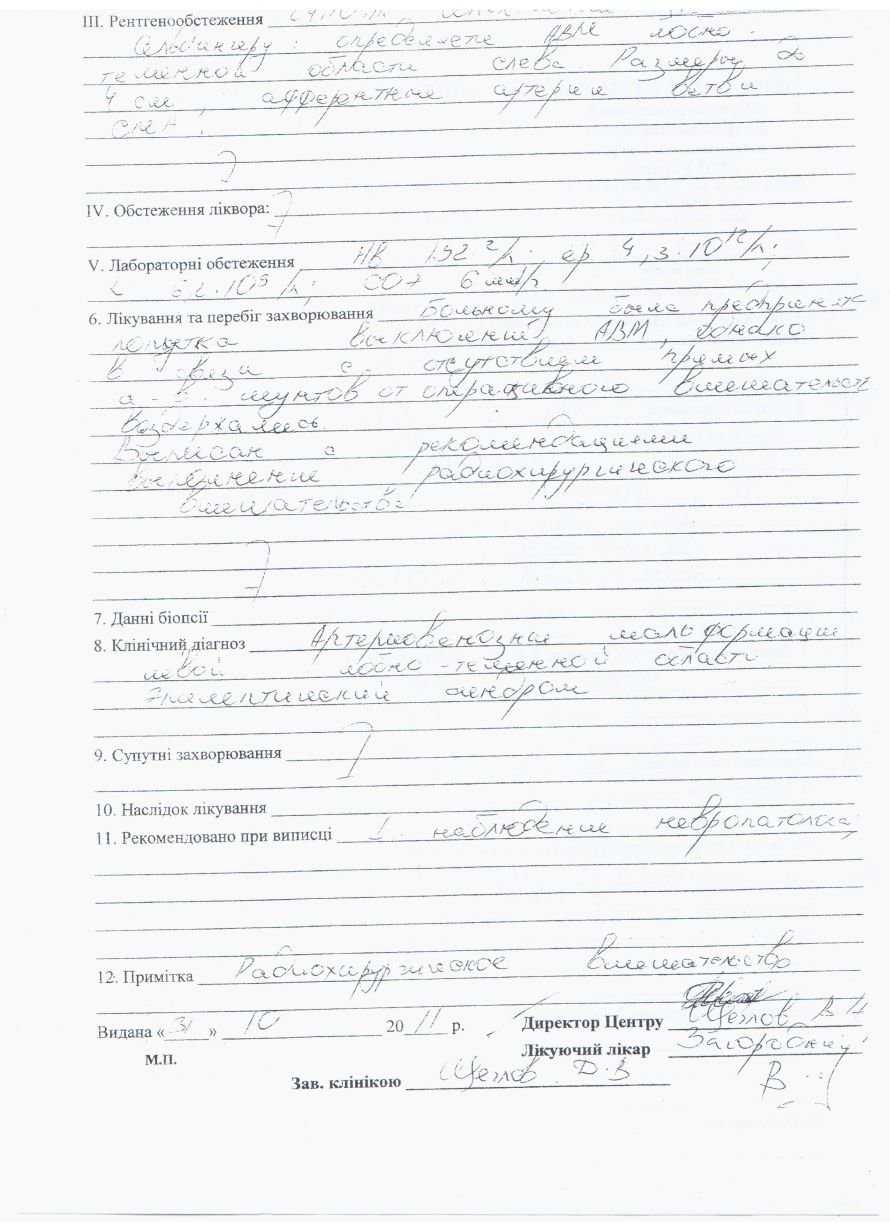 III. Рентгенообстеження
Сельдингеру: определяете АВМ лобно-
теменной области слева. Размеры до
4 см, афферентные артерии ветви
СМА.
IV. Обстеження ліквора:
V. Лабораторні обстеження Нв 132 г/л; эр 4,3·10¹²/л;
L 6,2·10⁹/л; СОЭ 6 мм/
6. Лікування та перебіг захворювання Больному была предпринята
попытка выключения АВМ, однако
в связи с отсутствием прямых
а-в. шунтов от оперативного вмешательств
воздержались.
Выписан с рекомендациями
выполнение радиохирургического
вмешательства
7. Данні біопсії
8. Клінічний діагноз Артериовенозная мальформация
левой лобно-теменной области
Эпилептический синдром
9. Супутні захворювання
10. Наслідок лікування
11. Рекомендовано при виписці 1. наблюдение невропатолога
12. Примітка Радиохирургическое вмешательство
Видана «31» 10 2011 р. Директор Центру Щеглов В И
М.П. Лікуючий лікар
Зав. клінікою Щеглов Д.В В